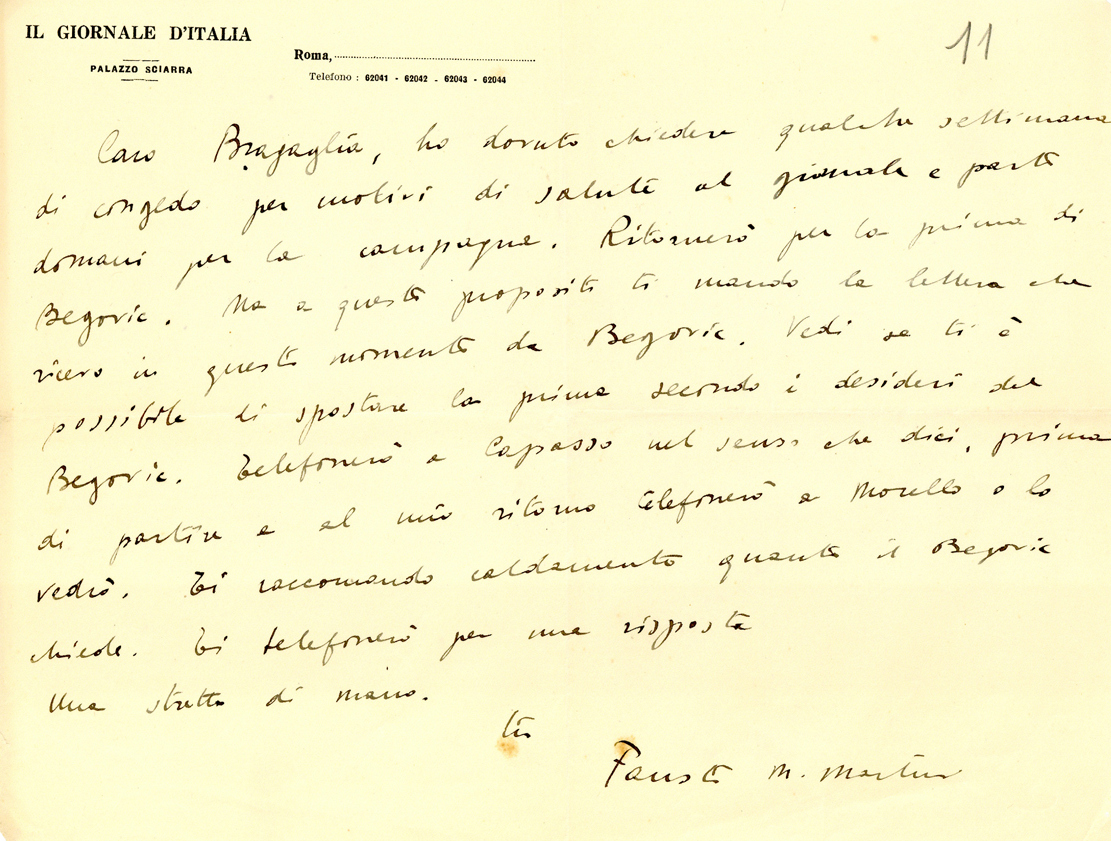 IL GIORNALE D'ITALIA
PALAZZO SCIARRA
Roma,
Telefono : 62041 - 62042 - 62043 - 62044
11
Caro Bragaglia, ho dovuto chiedere qualche settimana
di congedo per motivi di salute al giornale e parto
domani per la campagna. Ritornerò per la prima di
Begovic. Ma a questo proposito ti mando la lettera che
ricevo in questo momento da Begovic. Vedi se ti è
possibile di spostare la prima secondo i desideri del
Begovic. Telefonerò a Capasso nel senso che dici, prima
di partire e al mio ritorno telefonerò a Morello o lo
vedrò. Ti raccomando caldamente quanto il Begovic
chiede. Ti telefonerò per una risposta
Una stretta di mano.
tuo
Fausto M. Martini